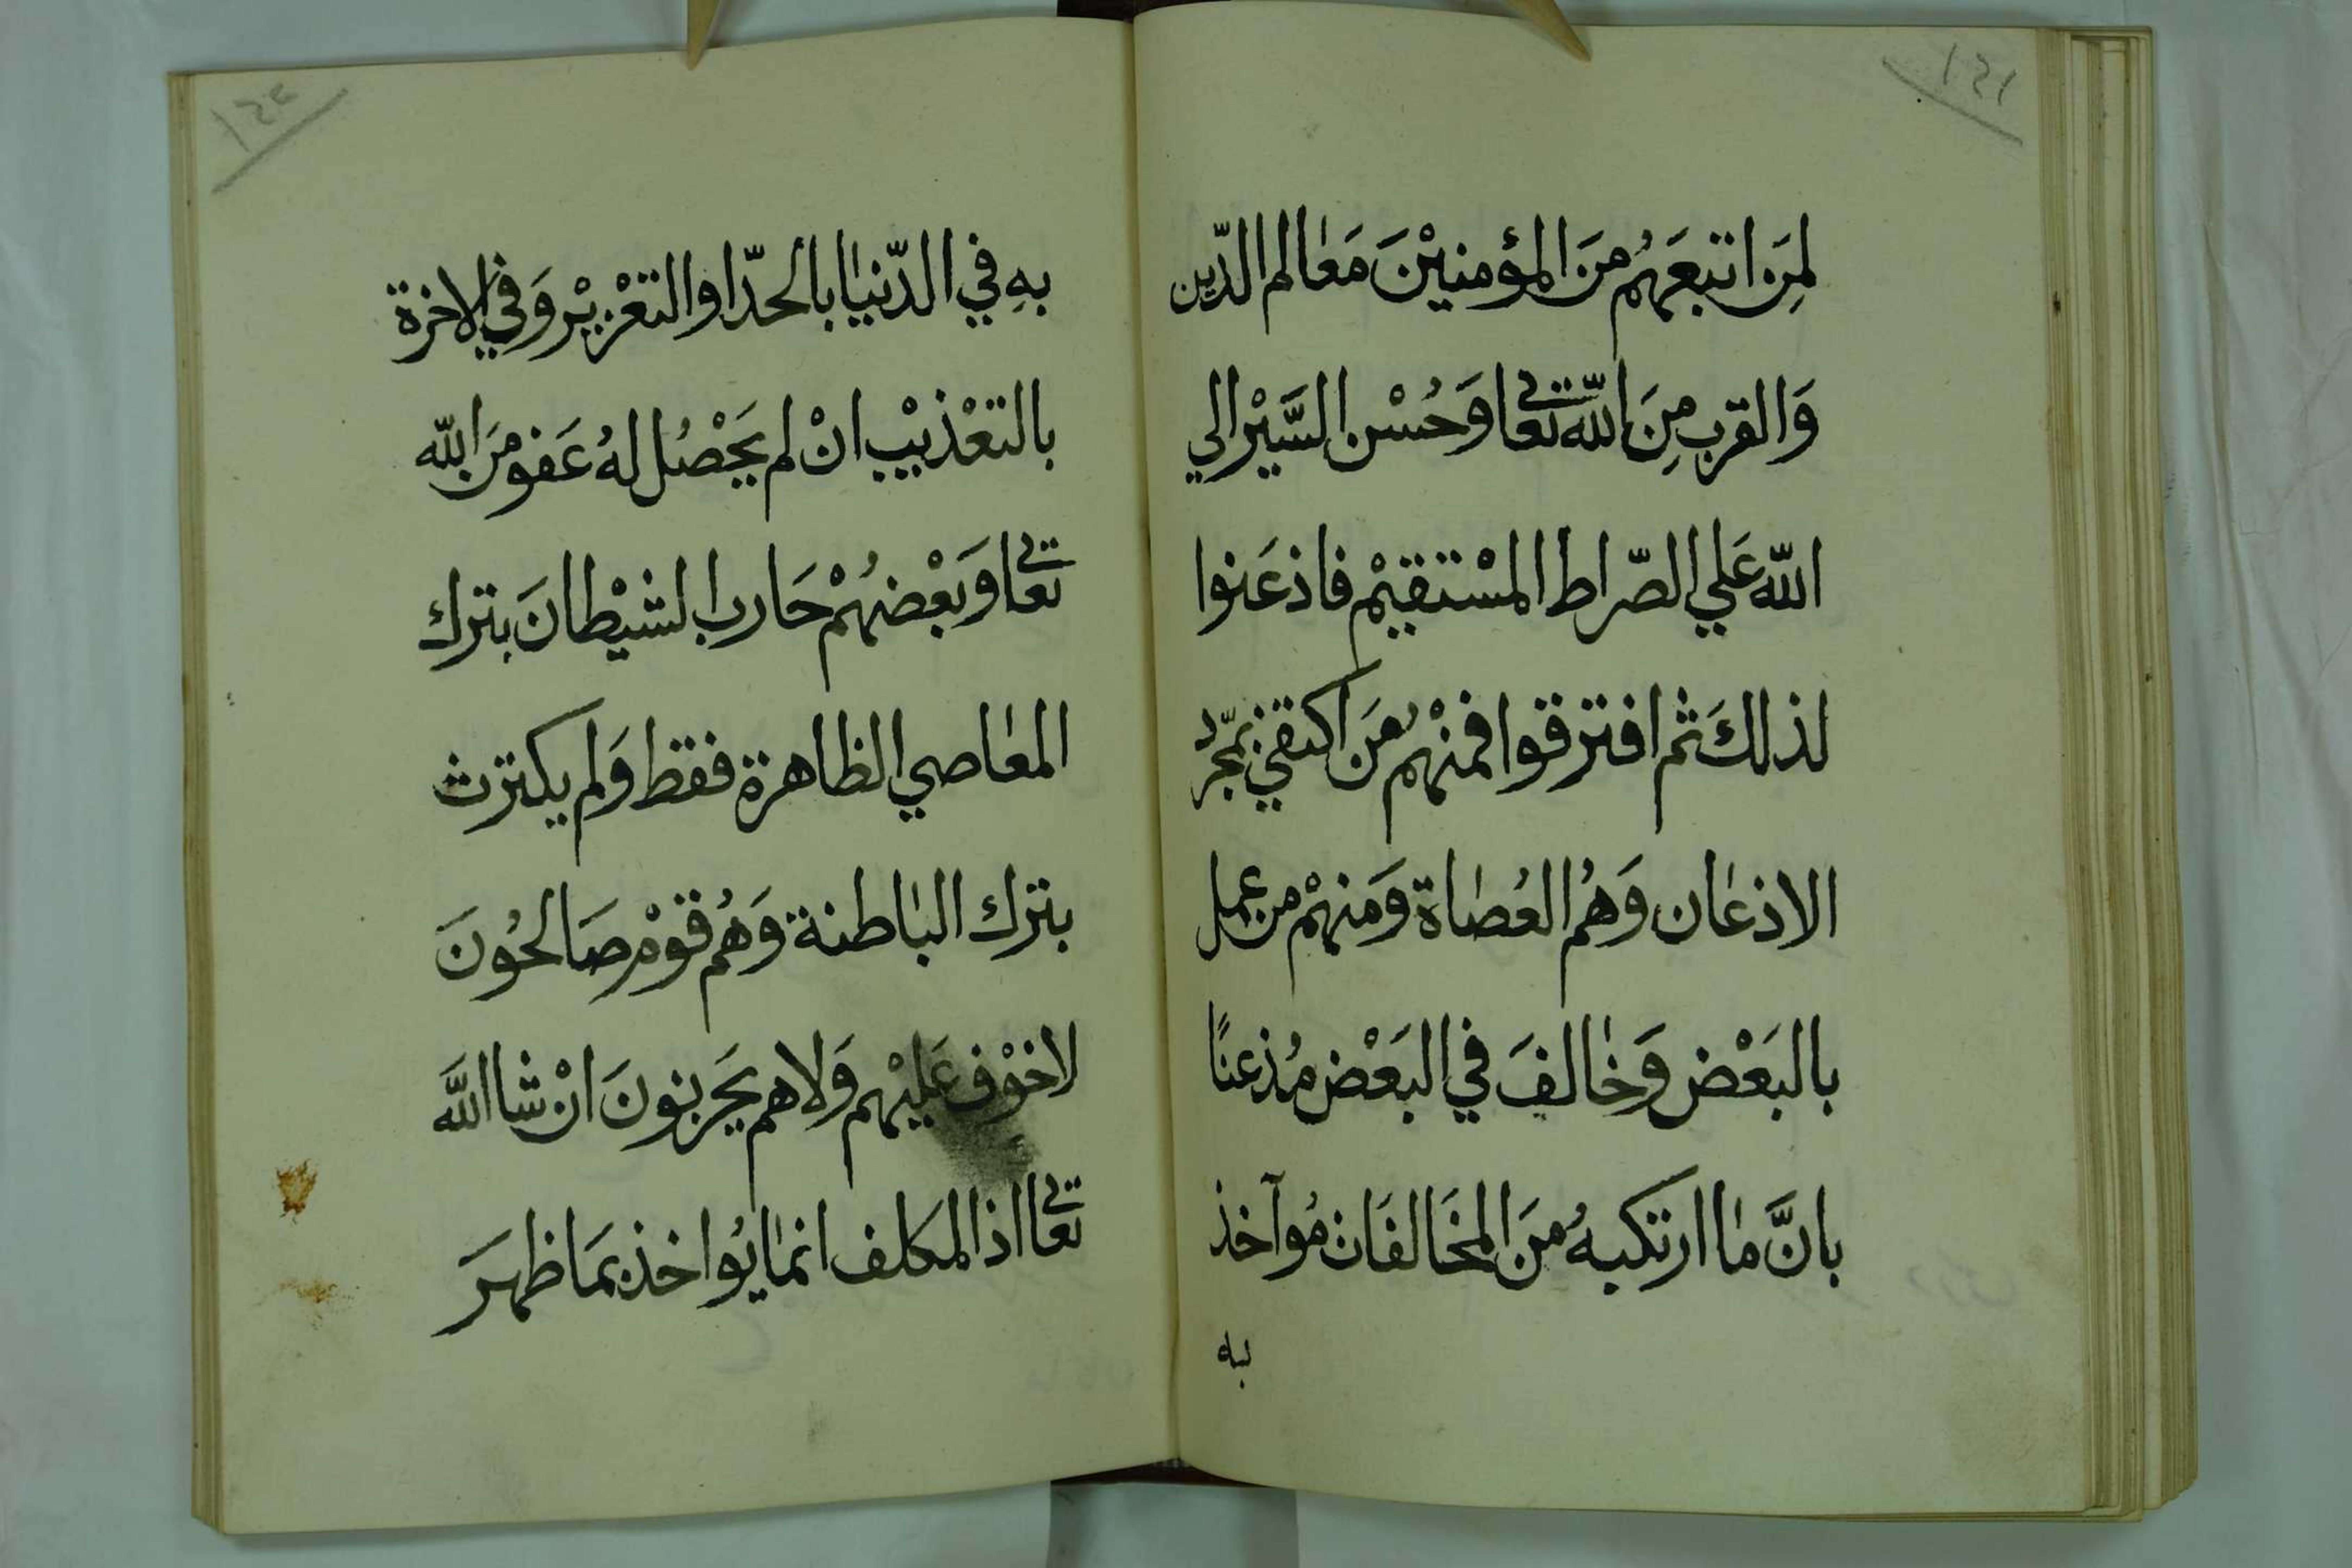 ١٤١
لِمَن اتبعَهُم مِنَ المؤمنيْنَ مَعَالم الدّين
وَالقرب مِنَ اللّه تعَا وَحُسْن السَّيْر الي
اللّه عَلي الصّراط المسْتقيْم فاذعَنوا
لذلكَ ثم افترقوا فمنْهُم مَن اكتفي بمجّرد
الاذعَان وَهُم العُصَاة وَمنهْم من عمل
بالبَعْض وَخَالفَ في البَعْض مُذعنًا
بانَّ مَا ارتكبهُ مِنَ المخَالفَات مُوآخذ
به
١٤٢
بهِ في الدّنيَا بالحدّ او التعْزيْر وَفي الاخرة
بالتعْذيْب انْ لم يَحْصُل لهُ عَفو مِنَ اللّه
تعَا وَبَعْضهُمْ حَارب الشيْطانَ بترك
المعَاصي الظاهرة فقط وَلم يكترث
بترك البَاطنة وَهُم قوْم صَالحُونَ
لاخوْف عَليْهم وَلاهم يَحزنونَ انْ شا اللَّه
تعَا اذ المكلف انمَا يُواخذ بمَا ظهرَ